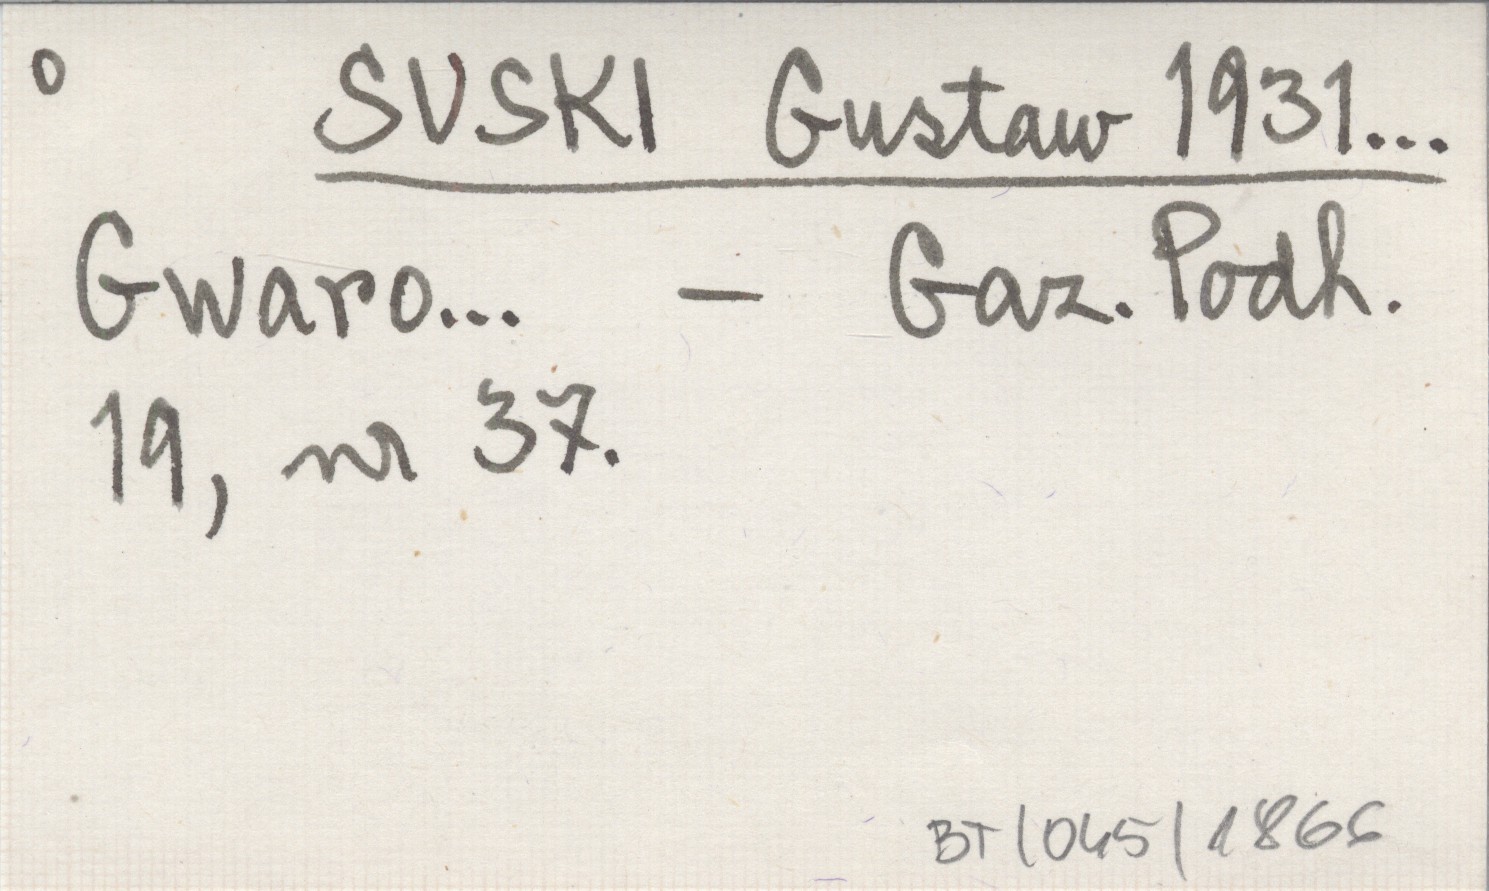 o SUSKI Gustaw 1931...
Gwaro... - Gaz. Podh.
19, nr 37.
BT/045/1866